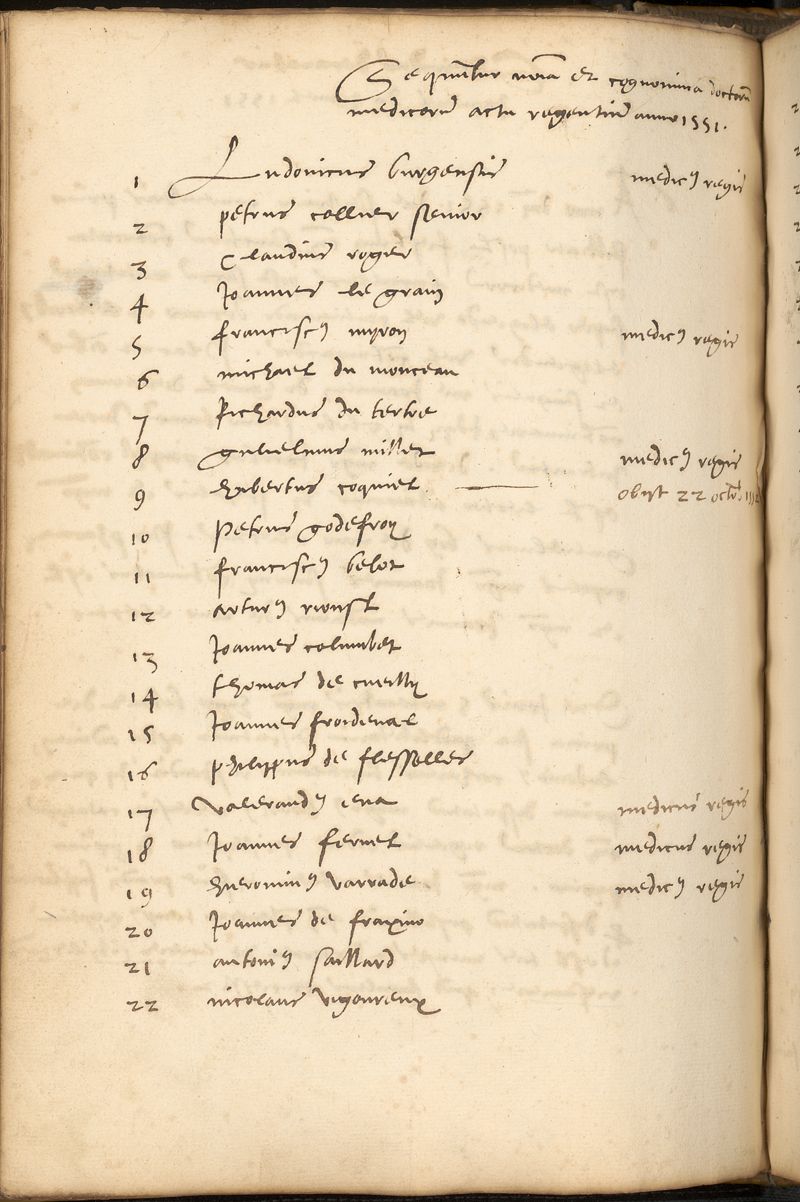 Sequntur noīa et cognomina doctorū
medicorū actu regentiū anno 1551.
1 Ludovicus burgensis medicꝰ regis
2 petrus collier senior
3 Claudius roger
4 Joannes le grain
5 franciscꝰ myron medicꝰ regis
6 michael du monceau
7 Richardus du tertre
8 gulielmus millet medicꝰ regis
9 hubertus coquiel obijt 22 octr̄.
10 Petrus godefroy
11 franciscꝰ belot
12 arturꝰ
13 Joannes columbet
14 thomas de cueilly
15 Joannes froideval
16 philippus de flesselles
17 Valerandꝰ medicus regis
18 Joannes fernel medicus regis
19 hieronimꝰ varrade medicꝰ regis
20 Joannes de fraxino
21 antoniꝰ saillard
22 nicolaus vigoureux